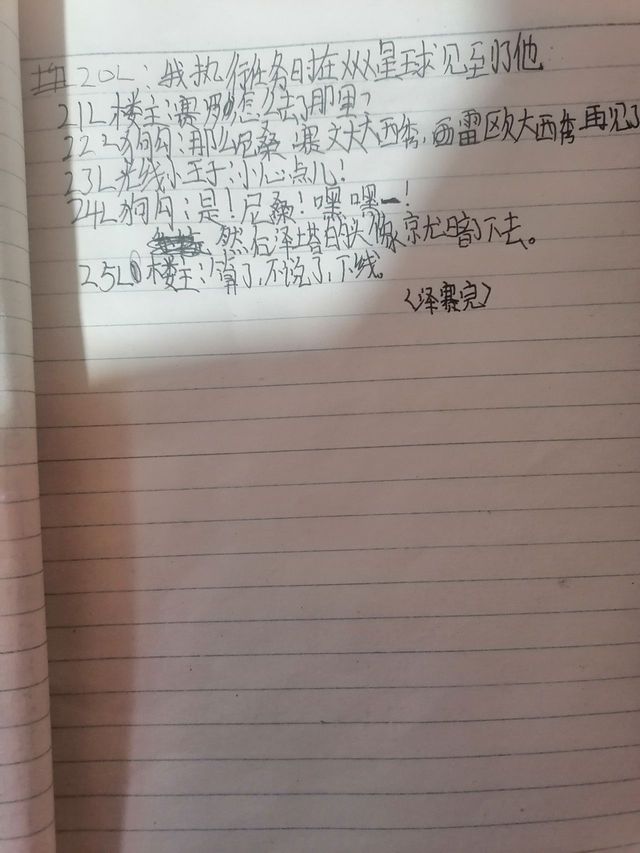 20L：我执行任务时在XX星球见到了他
21L楼主：赛罗怎么去了那里？
22L狗勾：那么尼桑，赛文大大西秀，西雷欧大西秀再见了
23L光线小王子：小心点儿！
24L狗勾：是！尼桑！嘿嘿一！
然后泽塔的头像就暗下去。
25L楼主：算了，不说了，下线。
〈泽赛完〉